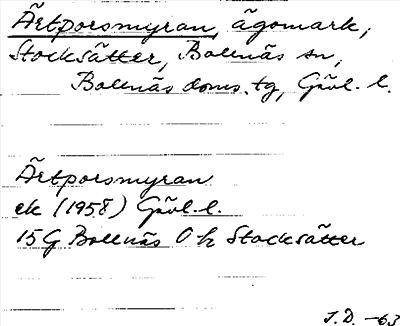 Ärtporsmyran, ägomark,
Stocksätter, Bollnäs sn,
Bollnäs doms. tg, Gävl. l.
Ärtporsmyran
ek (1958) Gävl. l.
15G Bollnäs 0 h Stocksätter
J.D. -63